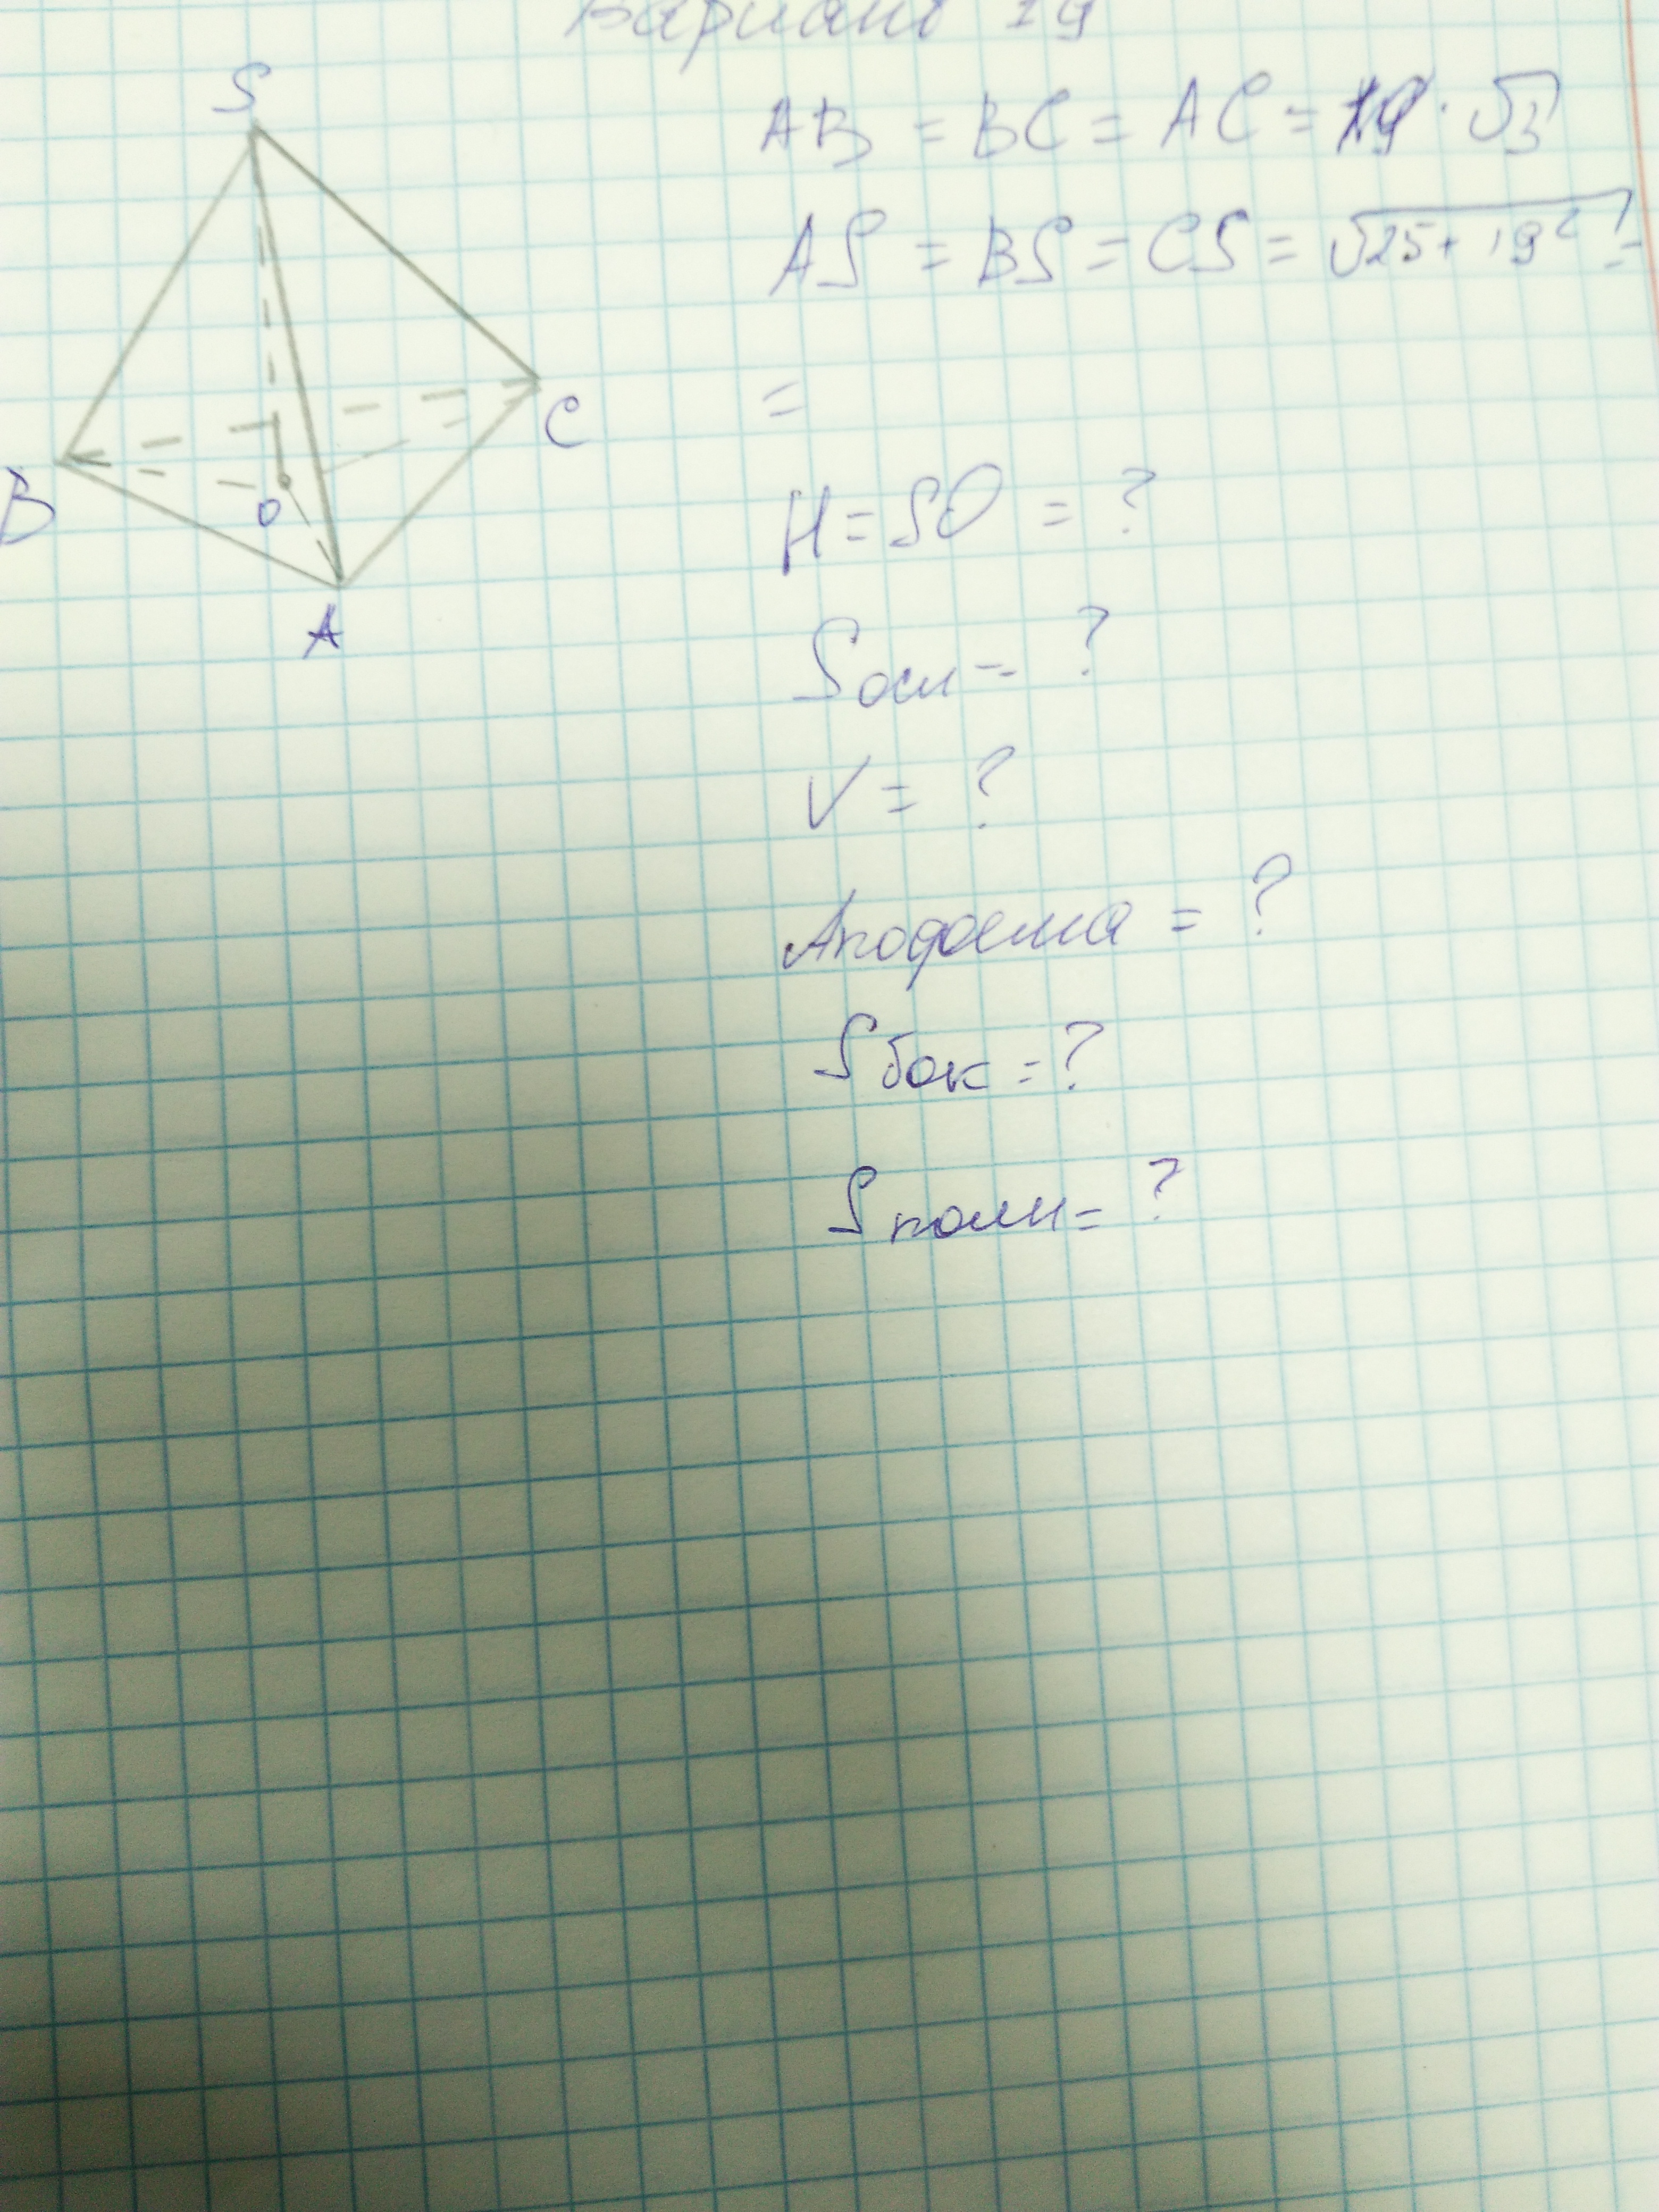 Вариант 19
S
AB = BC = AC = 19 · √3
AS = BS = CS = √25 + 19² =
=
C
B
O
A
H = SO = ?
Sосн = ?
V = ?
Апофема = ?
Sбок = ?
Sполн = ?